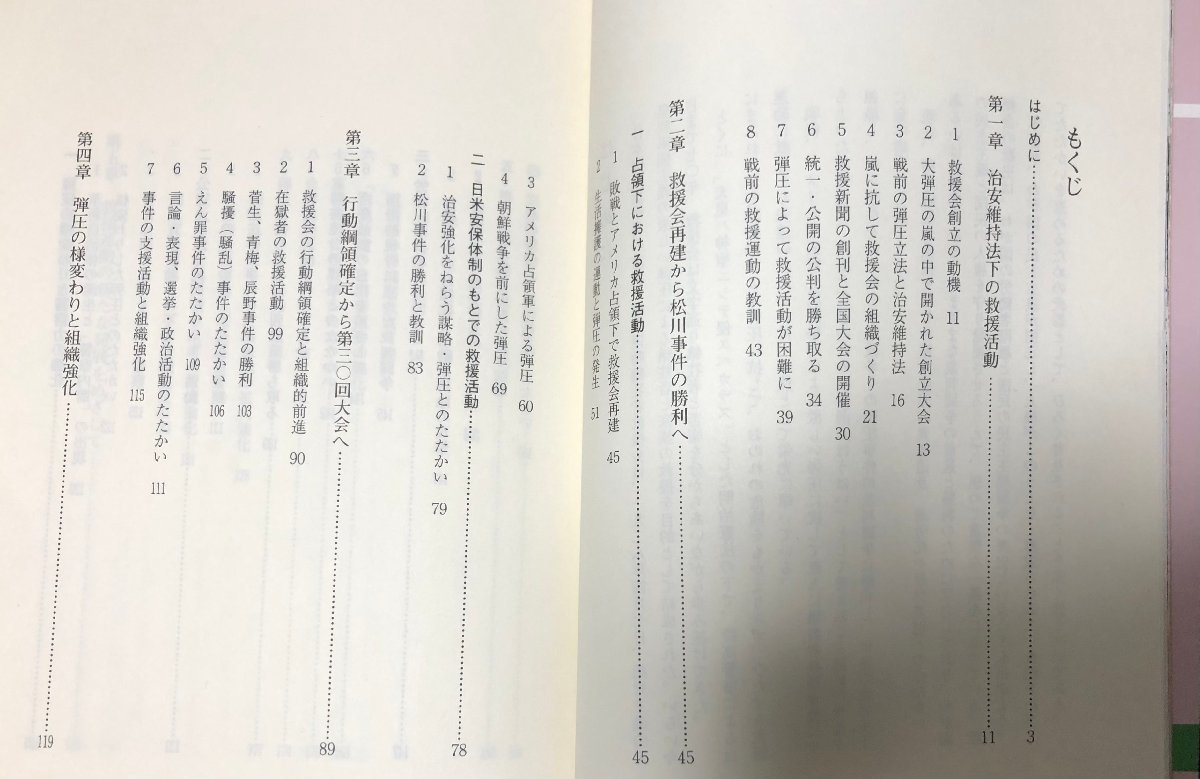 もくじ
はじめに……………………3
第一章　治安維持法下の救援活動……………………11
1　救援会創立の動機　11
2　大弾圧の嵐の中で開かれた創立大会　13
3　戦前の弾圧立法と治安維持法　16
4　嵐に抗して救援会の組織づくり　21
5　救援新聞の創刊と全国大会の開催　30
6　統一・公開の公判を勝ち取る　34
7　弾圧によって救援活動が困難に　39
8　戦前の救援運動の教訓　43
第二章　救援会再建から松川事件の勝利へ……………………45
一　占領下における救援活動……………………45
1　敗戦とアメリカ占領下で救援会再建　45
2　生活擁護の運動と弾圧の発生　51
3　アメリカ占領軍による弾圧　60
4　朝鮮戦争を前にした弾圧　69
二　日米安保体制のもとでの救援活動……………………78
1　治安強化をねらう謀略・弾圧とのたたかい　79
2　松川事件の勝利と教訓　83
第三章　行動綱領確定から第三〇回大会へ……………………89
1　救援会の行動綱領確定と組織的前進　90
2　在獄者の救援活動　99
3　菅生、青梅、辰野事件の勝利　103
4　騒擾（騒乱）事件のたたかい　106
5　えん罪事件のたたかい　109
6　言論・表現、選挙・政治活動のたたかい　111
7　事件の支援活動と組織強化　115
第四章　弾圧の様変わりと組織強化……………………119